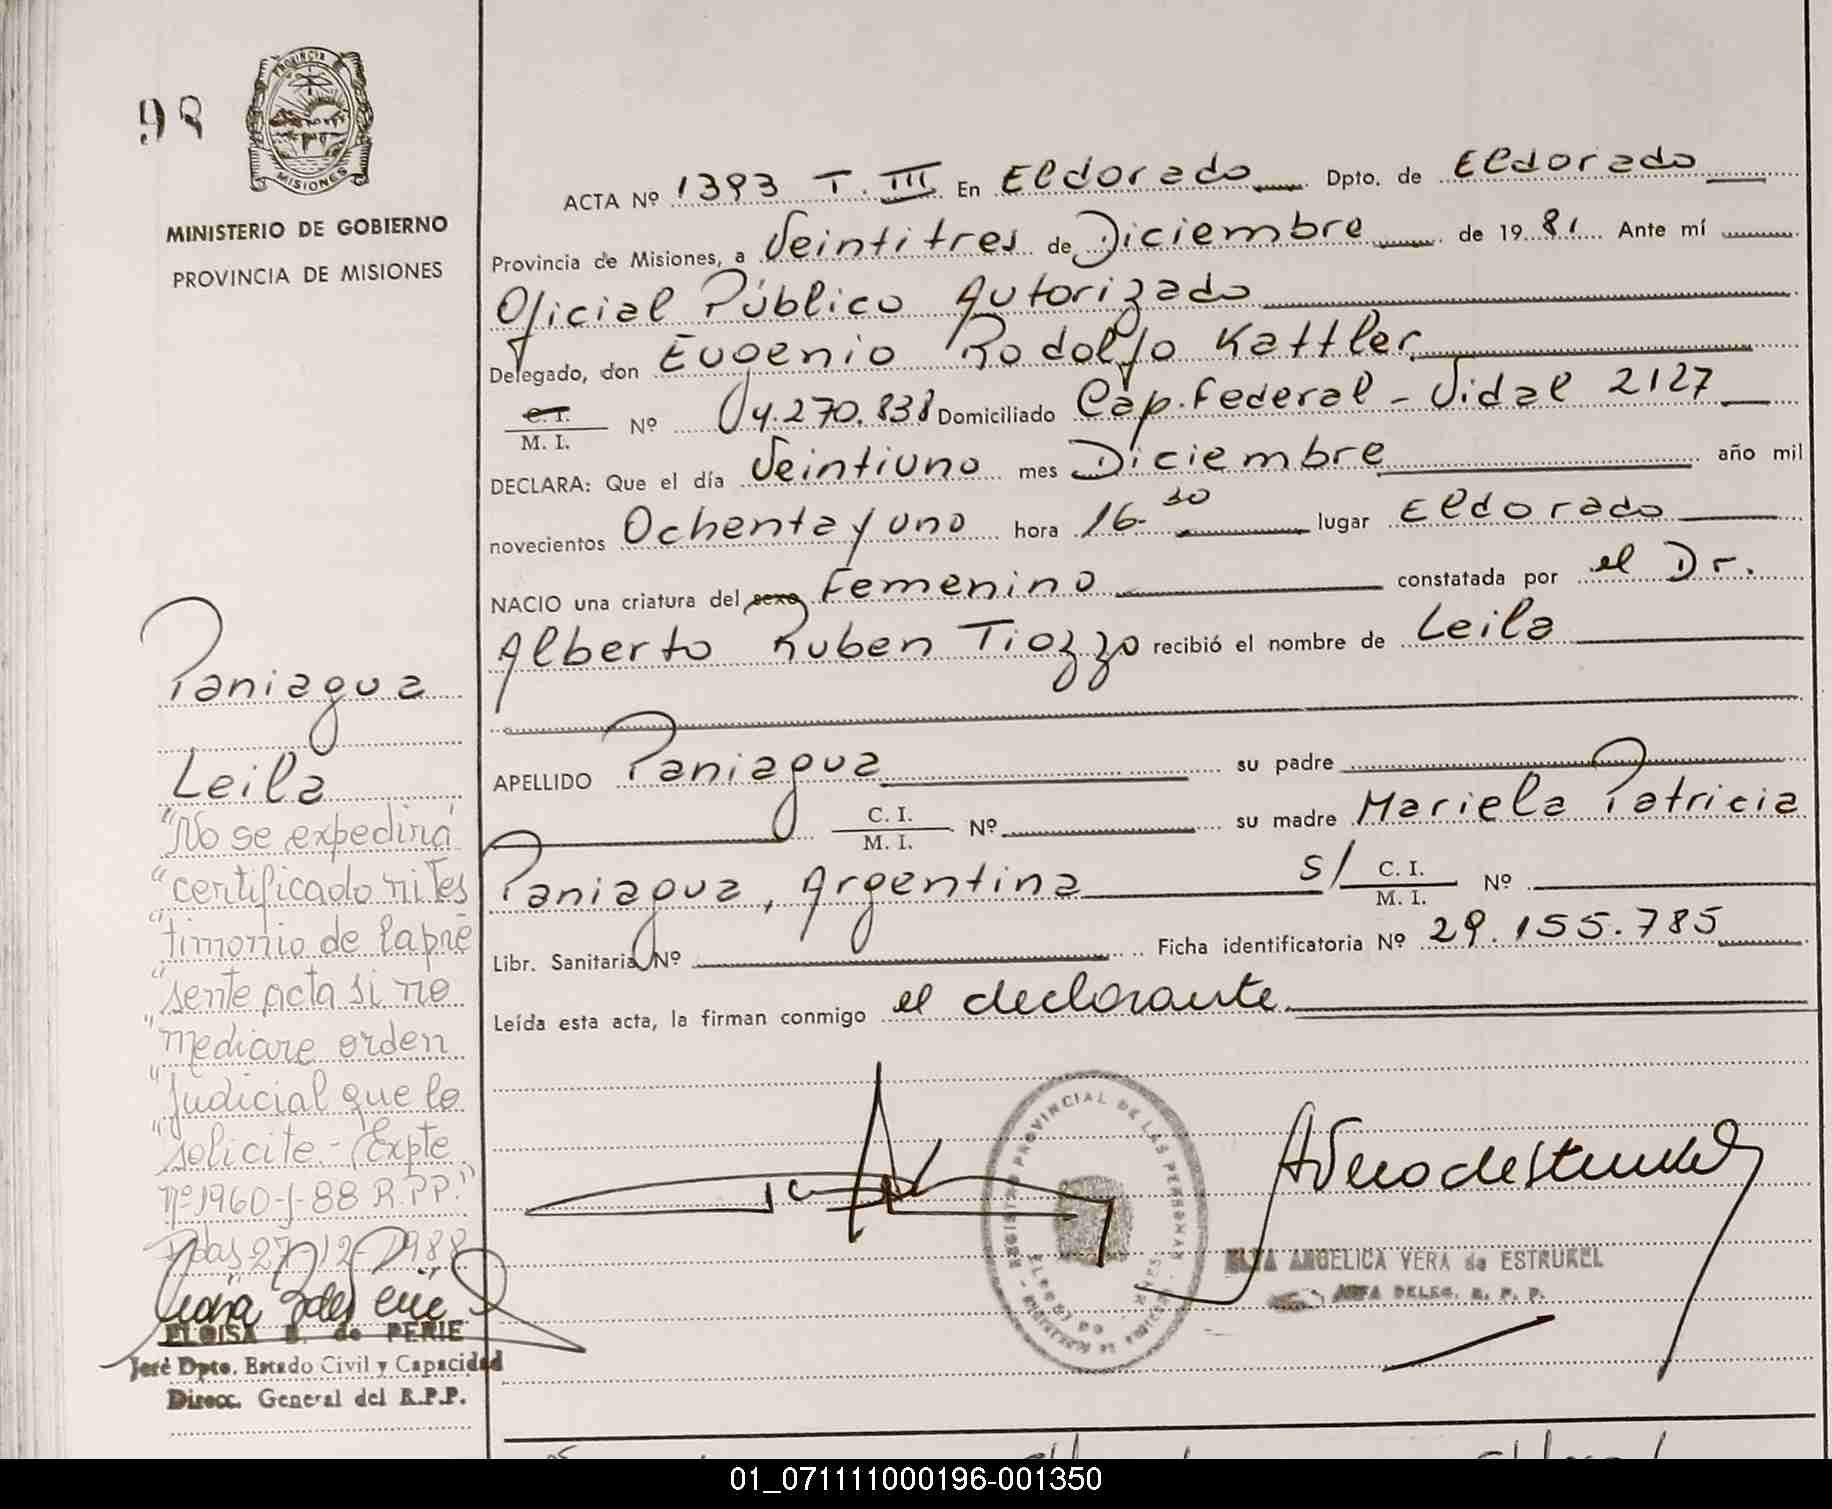 98
PROVINCIA
MISIONES
MINISTERIO DE GOBIERNO
PROVINCIA DE MISIONES
ACTA Nº 1393 T. III En Eldorado Dpto. de Eldorado
Provincia de Misiones, a Veintitres de Diciembre de 19 81 Ante mí
Oficial Público Autorizado
Delegado, don Eugenio Rodolfo Kattler
C. I.
M. I. Nº 04.270.838 Domiciliado Cap. Federal - Vidal 2127
DECLARA: Que el día Veintiuno mes Diciembre año mil
novecientos Ochenta y uno hora 16.30 lugar Eldorado
NACIO una criatura del sexo Femenino constatada por el Dr.
Alberto Ruben Tiozzo recibió el nombre de Leila
APELLIDO Paniagua su padre
C. I.
M. I. Nº su madre Mariela Patricia
Paniagua, Argentina S/ C. I.
M. I. Nº
Libr. Sanitaria Nº Ficha identificatoria Nº 29.155.785
Leída esta acta, la firman conmigo el declarante
Paniagua
Leila
"No se expedirá
"certificado ni tes
"timonio de la pre
"sente acta si no
"mediare orden
"judicial que lo
"solicite.- (Expte
nº 1960-J-88 R.P.P."
Pdas 27-12-1988
ELOISA B. de PERIE
Jefe Dpto. Estado Civil y Capacidad
Direcc. General del R.P.P.
REGISTRO PROVINCIAL DE LAS PERSONAS
ELSA ANGELICA VERA de ESTRUKEL
JEFA DELEG. R. P. P.
01_071111000196-001350